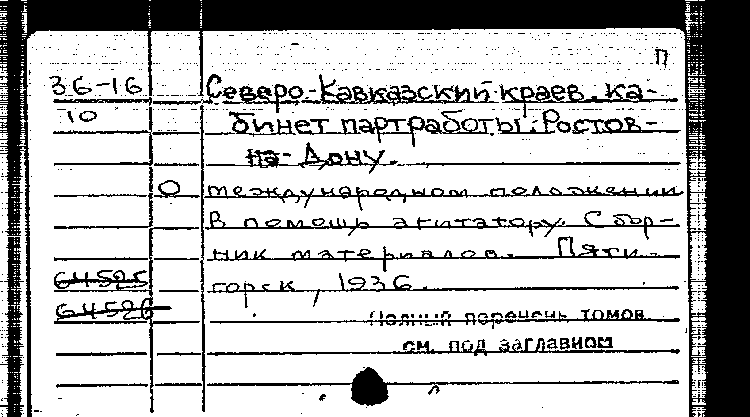 П
36-16 Северо-Кавказский краев. ка-
10 бинет партработы. Ростов-
на-Дону.
О международном положении
В помощь агитатору. Сбор-
ник материалов. Пяти-
64525 горск, 1936.
64526
Полный перечень томов
см. под заглавием